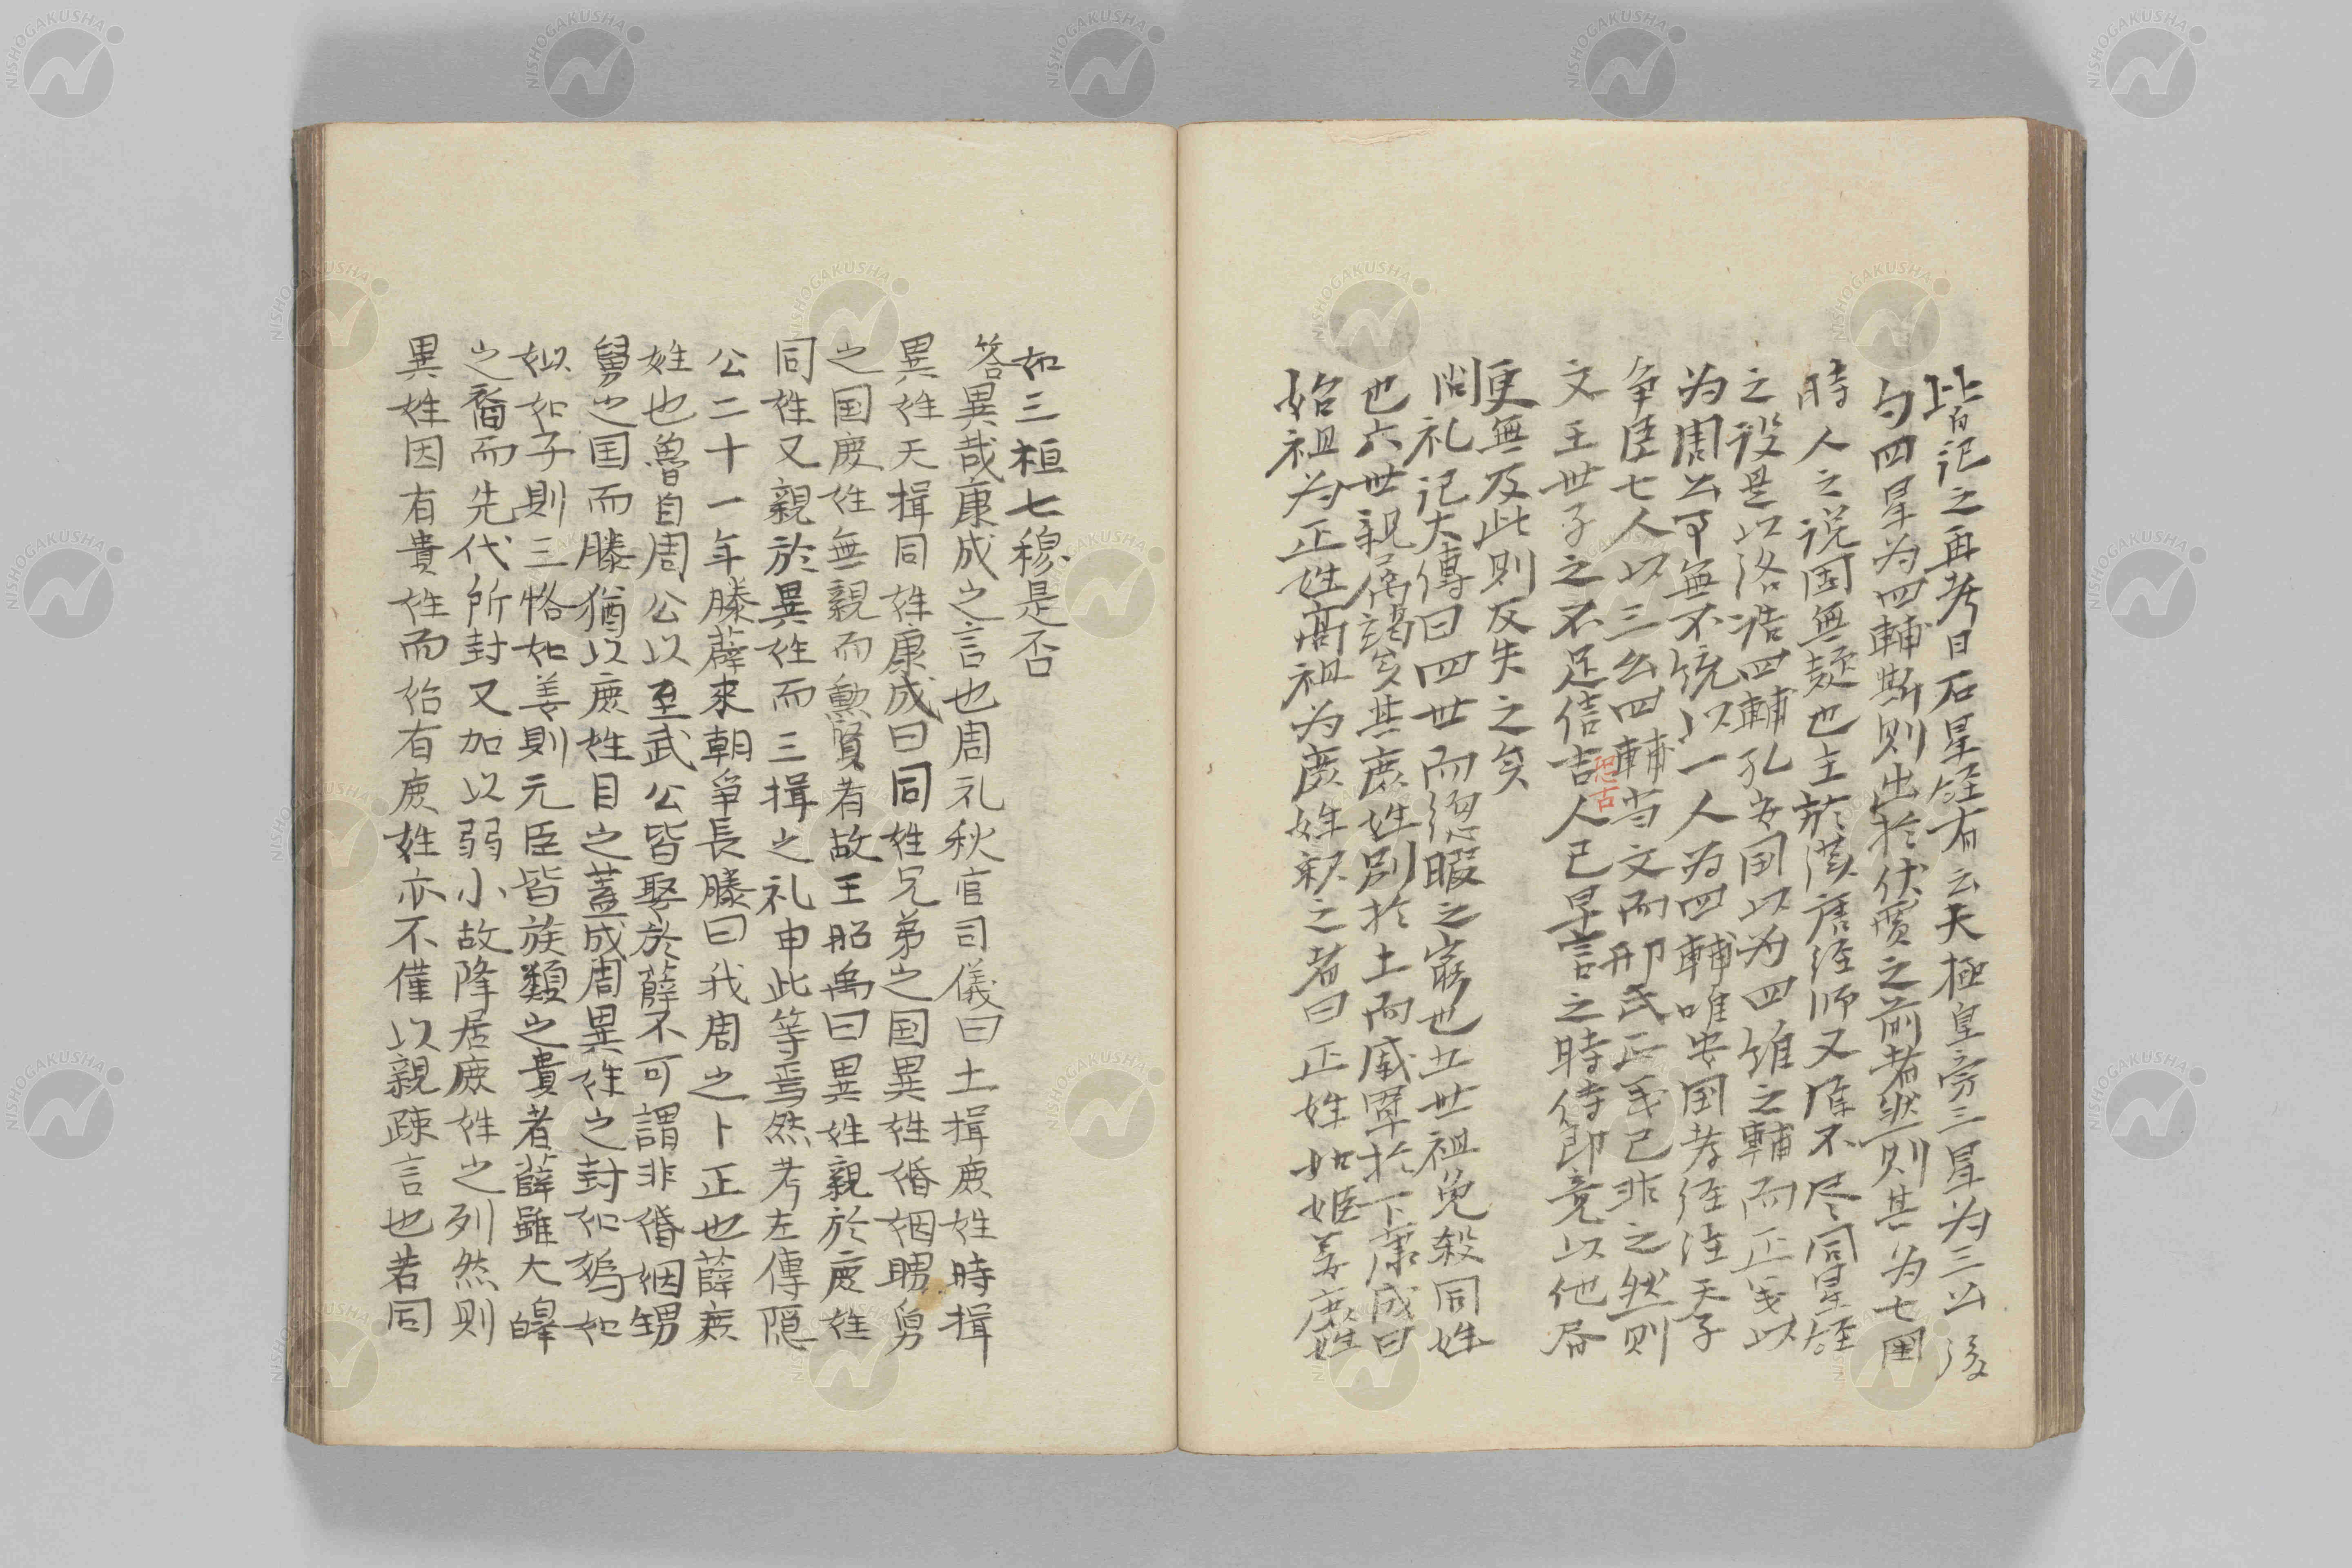 皆記之再考曰石星経有云天極皇旁三星为三公後
勾四星为四輔斯則出於伏賈之前者然則其为七国
時人之説固無疑也主於漢唐経师又原不尽同星経
之設是以洛浩四輔孔安国以为四维之輔而正義以
为周公事無不统以一人为四輔唯安国孝経注天子
争臣七人以三公四輔当文而邢氏正義已非之然则
文王世子之不足信古人已早言之時待即竟以他层
更無及此則反失之矣
問礼记大傳曰四世而缌暇之窮也五世祖免殺同姓
也六世親属竭矣其庶姓別於上而戚單於下康成曰
始祖为正姓高祖为庶姓釈之者曰正姓如姬姜庶姓
如三桓七穆是否
答異哉康成之言也周礼秋官司儀曰土揖庶姓時揖
異姓天揖同姓康成曰同姓兄弟之国異姓婚姻甥舅
之国庶姓無親而勲賢者故王昭禹曰異姓親於庶姓
同姓又親於異姓而三揖之礼申此等焉然考左傳隠
公二十一年滕薛來朝争長滕曰我周之卜正也薛庶
姓也魯自周公以至武公皆娶於薛不可謂非婚姻甥
舅之国而滕猶以庶姓目之蓋成周異姓之封如媯如
姒如子則三恪如姜則元臣皆族類之貴者薛雖大皞
之裔而先代所封又加以弱小故降居庶姓之列然則
異姓因有貴姓而始有庶姓亦不僅以親疎言也若同